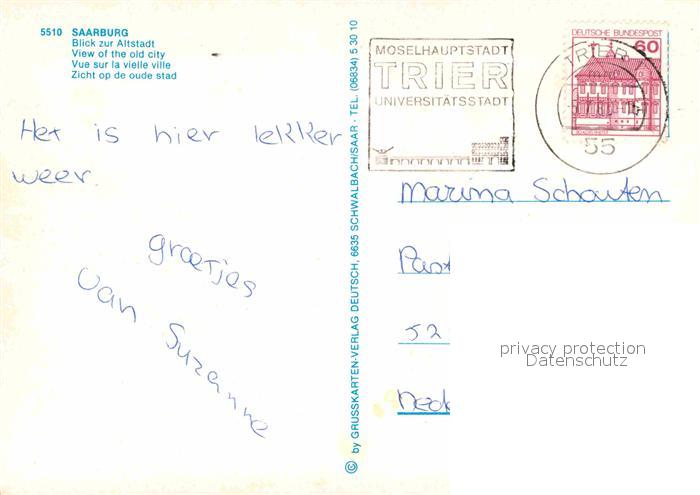 5510 SAARBURG
Blick zur Altstadt
View of the old city
Vue sur la vielle ville
Zicht op de oude stad
MOSELHAUPTSTADT
TRIER
UNIVERSITÄTSSTADT
DEUTSCHE BUNDESPOST
60
TRIER
55
Het is hier lekker
weer.
groetjes
van Suzanne
© by GRUSSKARTEN-VERLAG DEUTSCH, 6635 SCHWALBACH/SAAR · TEL. (06834) 5 30 10
Marina Schouten
Post
52
Nede
privacy protection
Datenschutz